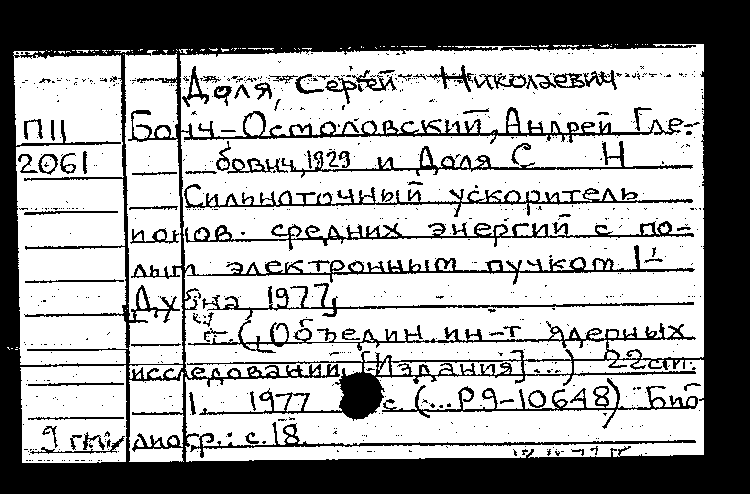 Доля, Сергей Николаевич
П11 Бонч-Осмоловский, Андрей Гле-
2061 бович, 1929 и Доля С Н
Сильноточный ускоритель
ионов средних энергий с по-
лым электронным пучком. 1-
Дубна, 1977
т. (Объедин. ин-т ядерных
исследований. [Издания] ...) 22 см.
1. 1977 с. (...Р9-10648). Биб-
лиогр.: с. 18.